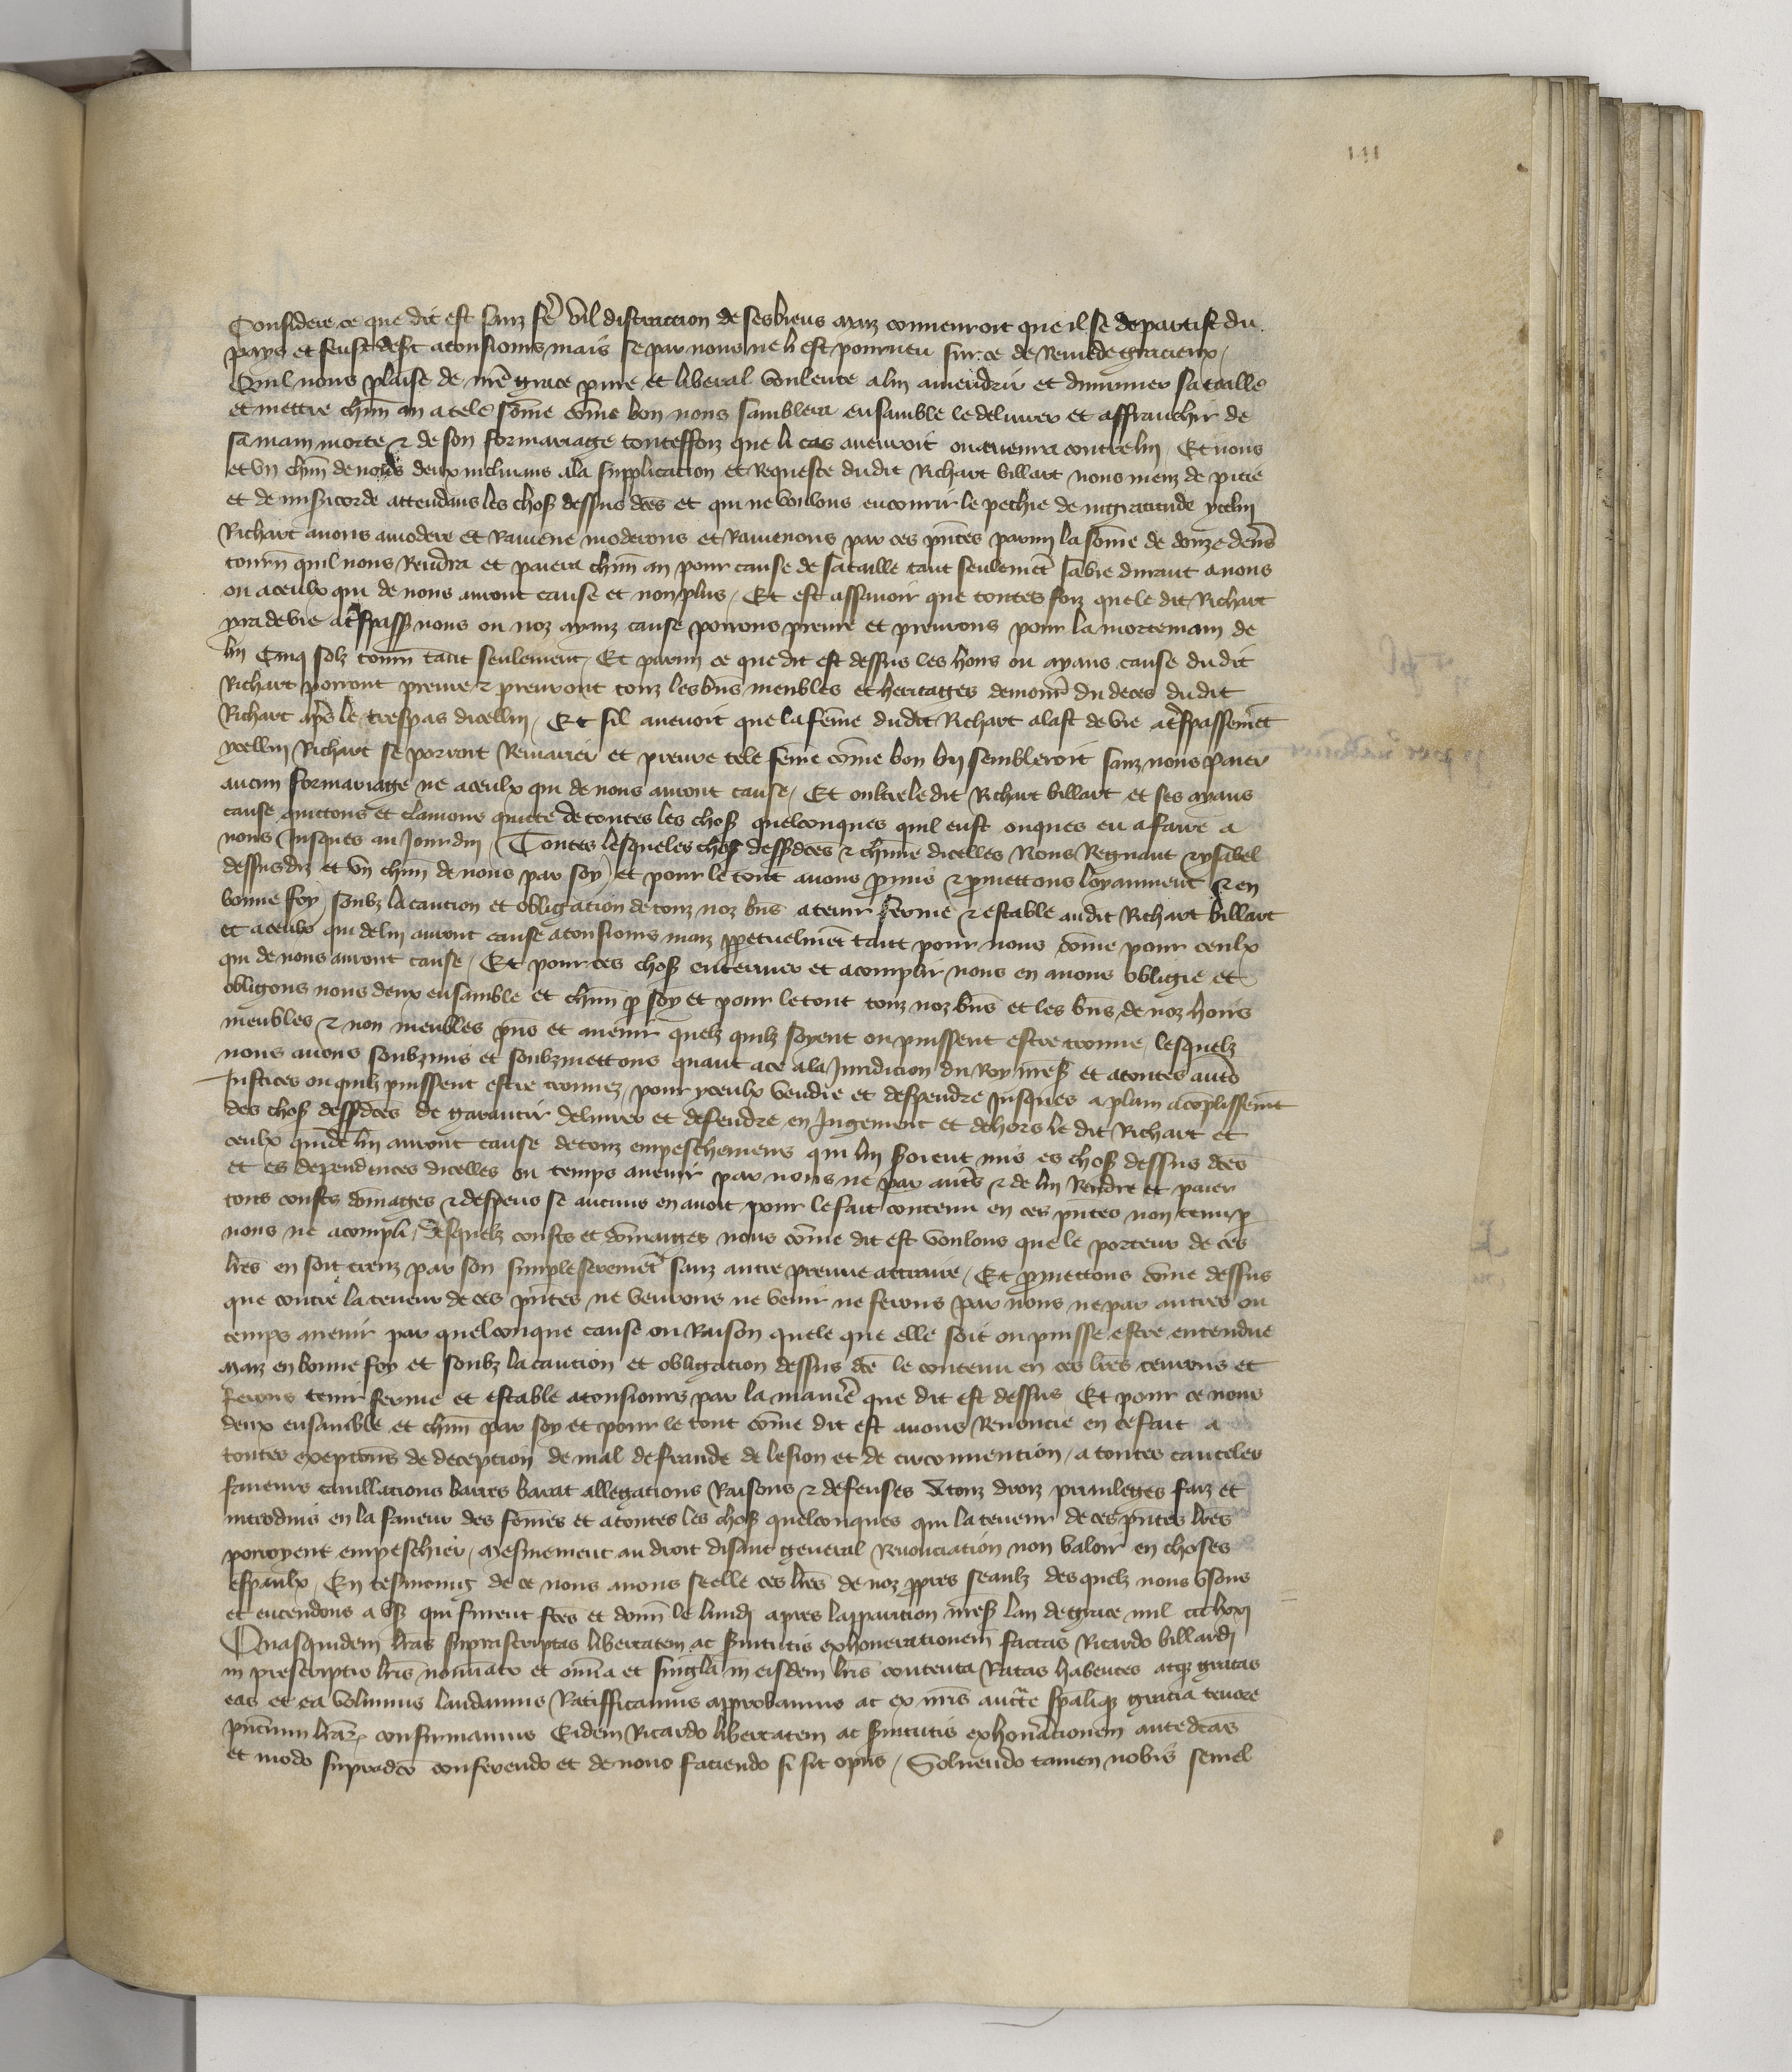 Considere ce que dit est sanz fe᷑ vil distraction de ses biens maiz convenroit que il se departist du
pays et feust desert a tousiours mais se par nous ne li est pourveu sur ce de Remede gracieux /
Quil nous plaise de nr̄e grace pure et liberal voulente a lui amendrir et diminuer sa taille
et mettre chūn an a tele som̄e com̄e bon nous samblera ensamble le delivrer et affranchir de
sa main morte ⁊ de son formariage toutesfoiz que li cas avenroit ou avenra contre lui / Et nous
et un chūn de nous deux inclinans a la supplicacion et Requeste du dit Richart billart nous meuz de pitie
et de misericorde attendans les chos̄ dessus d̄c̄es et qui ne voulons encourir le pechie de ingratitude ycelui
Richart avons amodere et Ramene moderons et Ramenons par ces p̄n̄tes parmi la som̄e de douze den̄s
tourn̄ quil nous Rendra et paiera chūn an pour cause de sa taille tant seulemēt sa vie durant a nous
ou a ceulx qui de nous auront cause et non plus / Et est assavoir que toutes foiz que le dit Richart
yra de vie a t̄spass̄ nous ou noz ayanz cause porrons prenre et prenrons pour la mortemain de
lui Cinq solz tourn̄ tant seulement / Et parmi ce que dit est dessus les hoirs ou ayans cause du dit
Richart porront prenre ⁊ prenront touz les bn̄s meubles et heritages demour̄ du deces du dit
Richart ap̄s le trespas dicellui / Et sil avenoit que la fem̄e du dit Richart alast de vie a t̄spassemēt
ycellui Richart se porroit Remarier et prenre tele fem̄e com̄e bon lui sembleroit sanz nous paier
aucun formariage ne a ceulx qui de nous auront cause / Et oultre le dit Richart billart et ses ayans
cause quictons et clamons quicte de toutes les chos̄ quelconques quil eust onques eu a faire a
nous Jusques au Jourdui / Toutes lesqueles chos̄ dess̄d̄c̄es ⁊ chūne dicelles Nous Regnaut ⁊ ysabel
dessus diz et un chūn de nous par soy et pour le tout avons p̄mis ⁊ p̄mettons loyaument ⁊ en
bonne foy soubz la caution et obligation de touz noz bn̄s a tenir ferme ⁊ estable au dit Richart billart
et a ceulx qui de lui auront cause a tousiours maiz p̄petuelmēt tant pour nous com̄e pour ceulx
qui de nous auront cause / Et pour ces chos̄ enteriner et acomplir nous en avons obligie et
obligons nous deux ensamble et chūn p̄ soy et pour le tout touz noz bn̄s et les bn̄s de noz hoirs
meubles ⁊ non meubles p̄n̄s et avenir quelz quilz soyent ou puissent estre trouve / lesquelz
nous avons soubzmis et soubzmettons quant a ce a la Juridicion du Roy mes̄ et a toutes aut̄s
Justices ou quilz puissent estre trouvez / pour yceulx vendre et despendre Jusques a plain acōplissemēt
des chos̄ dess̄d̄c̄es de garantir delivrer et defendre en Jugement et dehors le dit Richart et
ceulx qui de lui auront cause de touz empeschemens qui lui seroient mis es chos̄ dessus d̄c̄es
et es dependences dicelles ou temps avenir par nous ne par aut̄s ⁊ de lui Rendre et paier
touz coustz dom̄ages ⁊ despens se aucuns en avoit pour le fait contenu en ces p̄n̄tes non tenu p̄
nous ne acompli / Desquelz coustz et dom̄ages nous com̄e dit est voulons que le porteur de ces
lr̄es en soit creuz par son simple seremēt sanz autre preuve attraire / Et p̄mettons com̄e dessus
que contre la teneur de ces p̄n̄tes ne venrons ne venir ne ferons par nous ne par autres ou
temps avenir par quelconque cause ou Raison quele que elle soit ou puisse estre entendue
maiz en bonne foy et soubz la caution et obligation dessus d̄c̄e le contenu en ces lr̄es tenrons et
ferons tenir ferme et estable a tousiours par la manie᷑ que dit est dessus / Et pour ce nous
deux ensamble et chūn par soy et pour le tout com̄e dit est avons Renoncie en ce fait a
toutes excepcōns de deception de mal de fraude de lesion et de circonvention / a toutes cauteles
faveurs cavillations barres barat allegations Raisons ⁊ defenses A touz droiz privileges faiz et
introduis en la faveur des fem̄es et a toutes les chos̄ quelconques qui la teneur de ces p̄n̄tes lr̄es
porroyent empeschier / mesmement au droit disant general Renonciation non valoir en choses
esp̄aulx / En tesmoing de ce nous avons seelle ces lr̄es de noz p̄pres seaulx des quelz nous usons
et entendons a us̄ qui furent fc̄es et donn̄ le lundi apres lapparition nr̄es̄ lan de grace mil ccc lxxi
Quasquidem lr̄as suprascriptas libertatem ac s̄vitutis exhonerationem factas Ricardo billardi
in prescriptis lr̄is nominato et om̄ia et sinḡla in eisdem lr̄is contenta Ratas habentes atq̨ gratas
eas et ea volumus laudamus Ratifficamus approbamus ac ex nr̄is auct̄te sp̄aliq̨ gracia tenore
p̄n̄cium lr̄aꝝ confirmamus Eidem Ricardo libertatem ac s̄vitutis exhon̄ationem anted̄c̄as
et modo suprad̄c̄o conferendo et de novo faciendo si sit opus / Solvendo tamen nobis semel